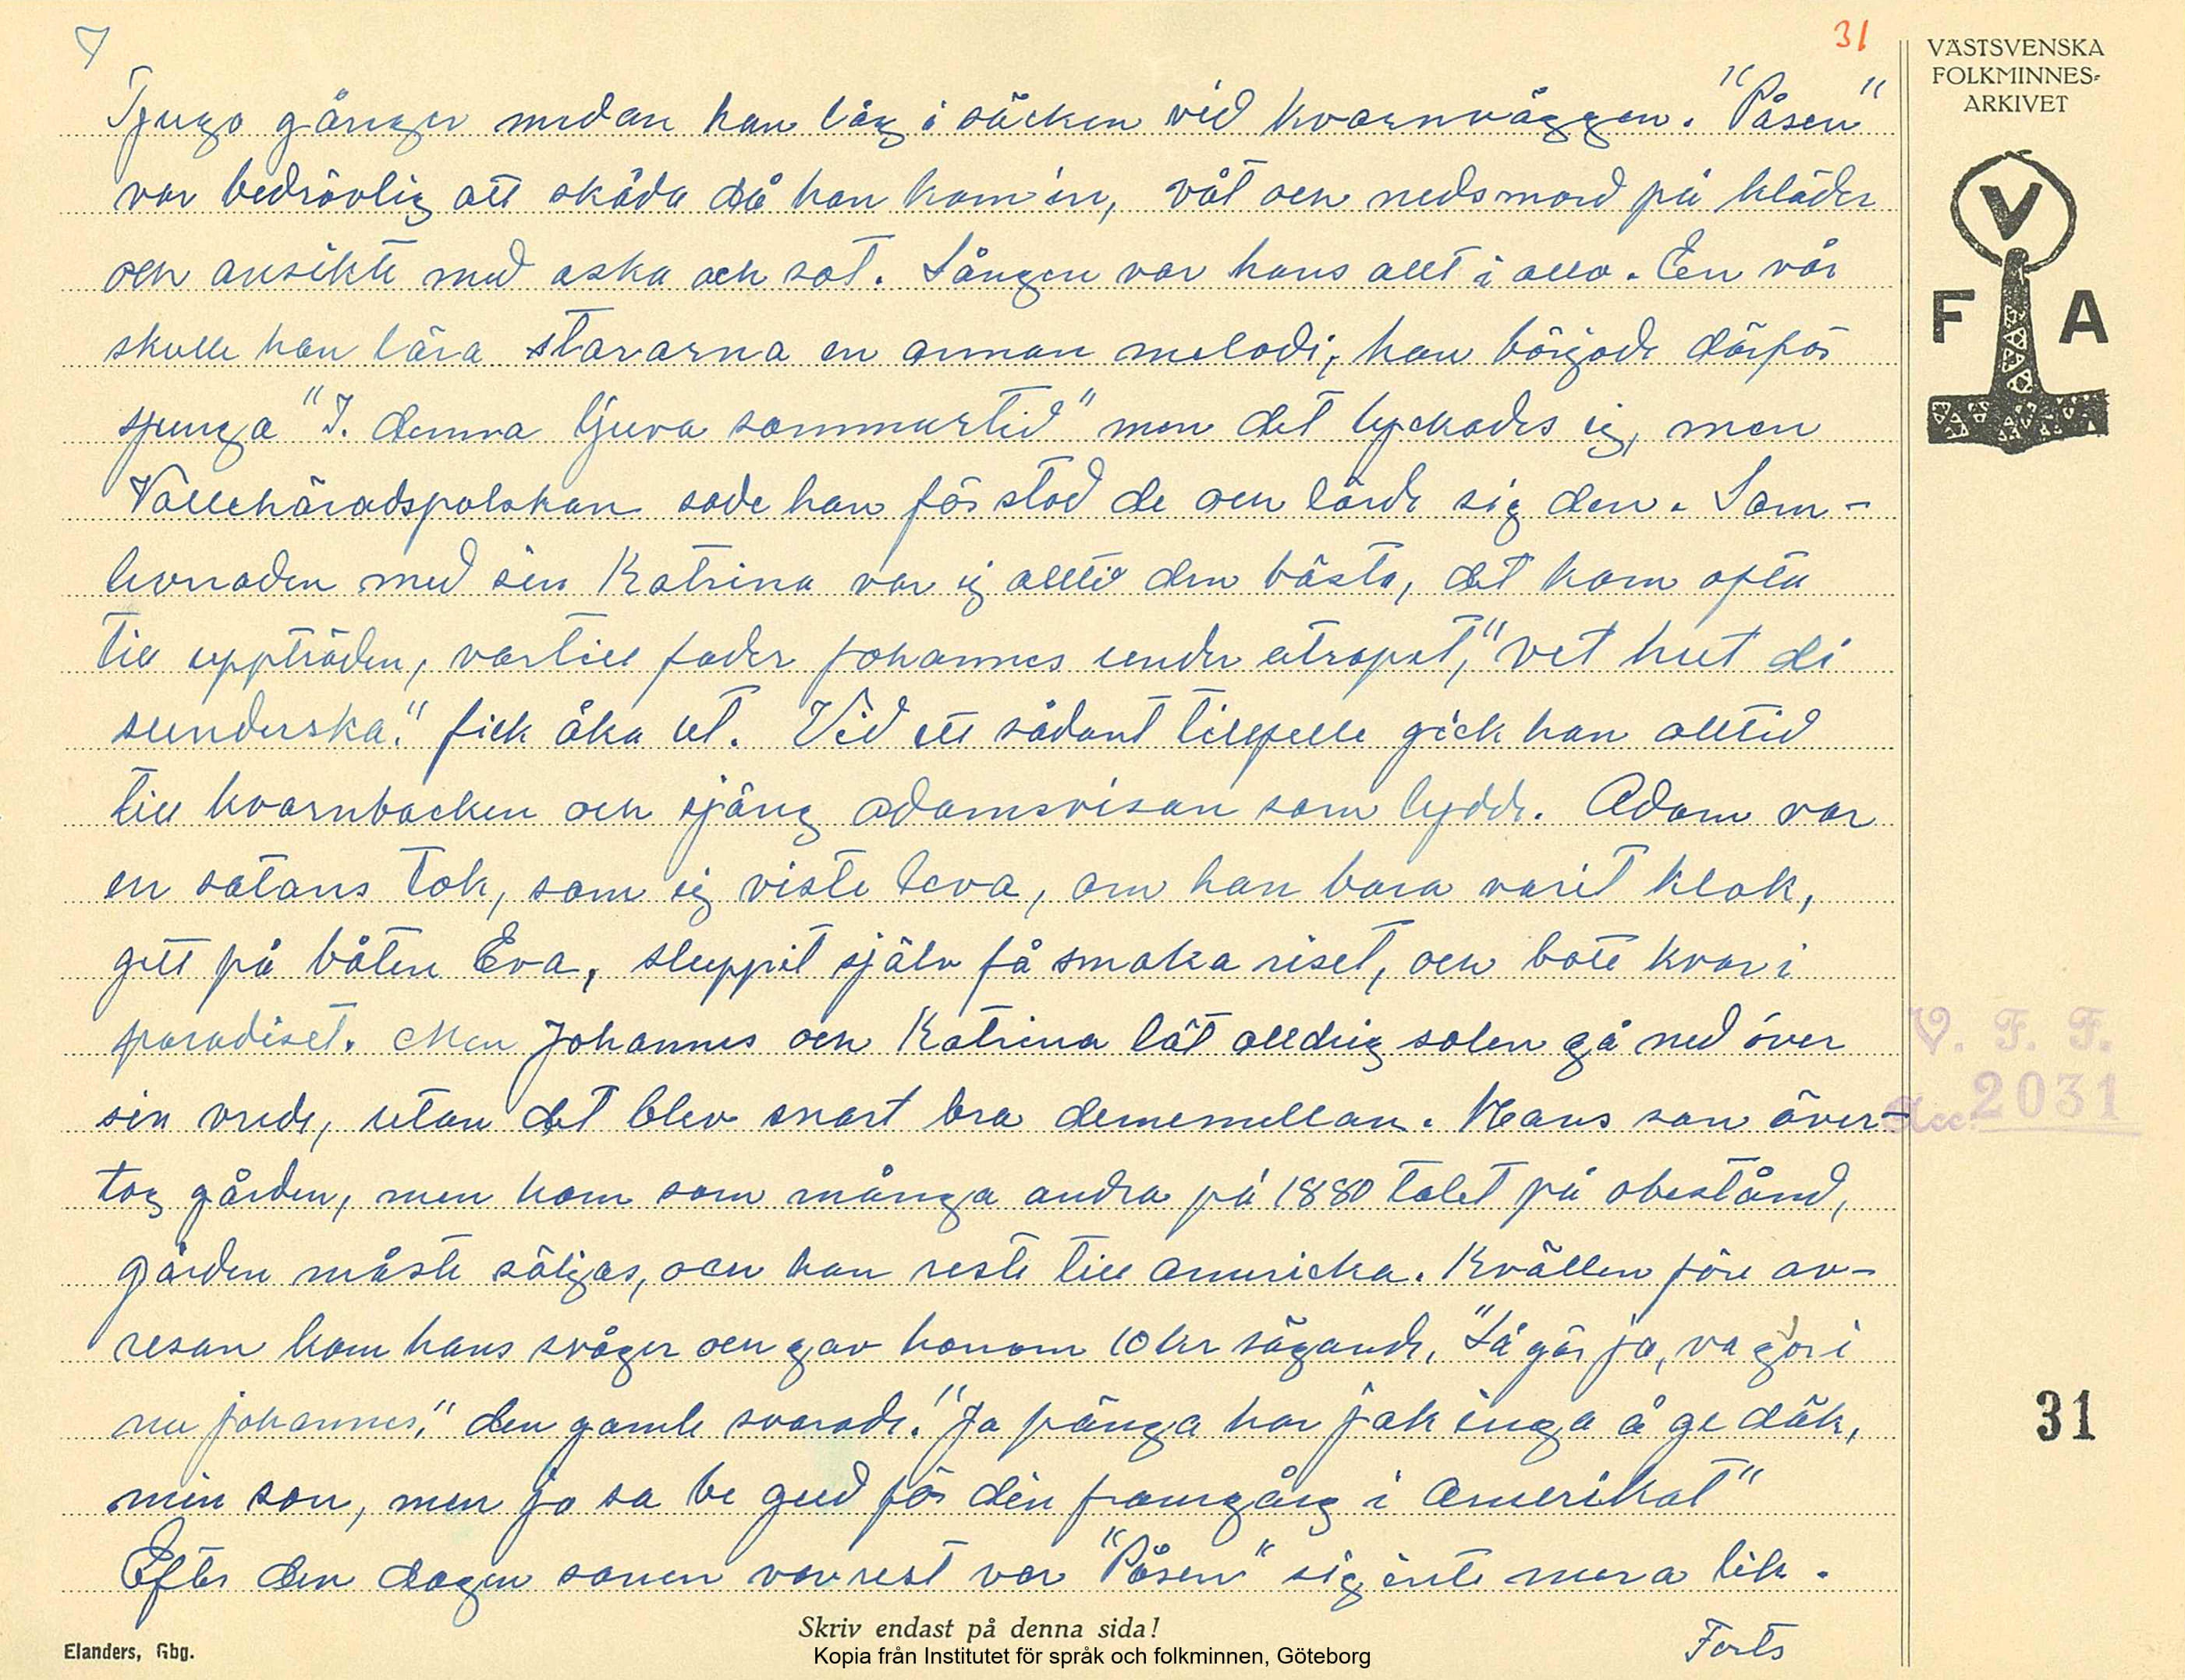 7
31
VÄSTSVENSKA
FOLKMINNES-
ARKIVET
V
F A
Tjugo gånger medan han låg i säcken vid kvarnväggen. "Påsen"
var bedrövlig att skåda då han kom in, våt och nedsmord på kläder
och ansikte med aska och sot. Sången var hans allt i allo. En vår
skulle han lära stararna en annan melodi, han började därför
sjunga "I. denna ljuva sommartid" men det lyckades ej, men
Vallehäradspolskan sade han förstod de och lärde sig den. Sam-
levnaden med sin Katrina var ej alltid den bästa, det kom ofta
till uppträden, vartill fader Johannes under utropet, "vet hut di
sunderska." fick åka ut. Vid ett sådant tillfelle gick han alltid
till kvarnbacken och sjöng adamsvisan som lydde. Adam var
en satans tok, som ej viste leva, om han bara varit klok,
gett på båten Eva, sluppit själv få smaka riset, och bott kvar i
paradiset. Men Johannes och Katrina lät alldrig solen gå ned över
sin vrede, utan det blev snart bra dememellan. Hans son över-
tog gården, men kom som många andra på 1880 talet på obestånd,
gården måste säljas, och han reste till Americka. Kvällen före av-
resan kom hans svåger och gav honom 10 kr sägande, "Så gör ja, va gör i
nu Johannes," den gamle svarade. "Ja pänga har jak inga å ge däk,
min son, men ja sa be gud för din framgång i Amerikat"
Efter den dagen sonen var rest var "Påsen" sig inte mera lik.
Forts
V. F. F.
Acc. 2031
31
Skriv endast på denna sida!
Elanders, Gbg.
Kopia från Institutet för språk och folkminnen, Göteborg